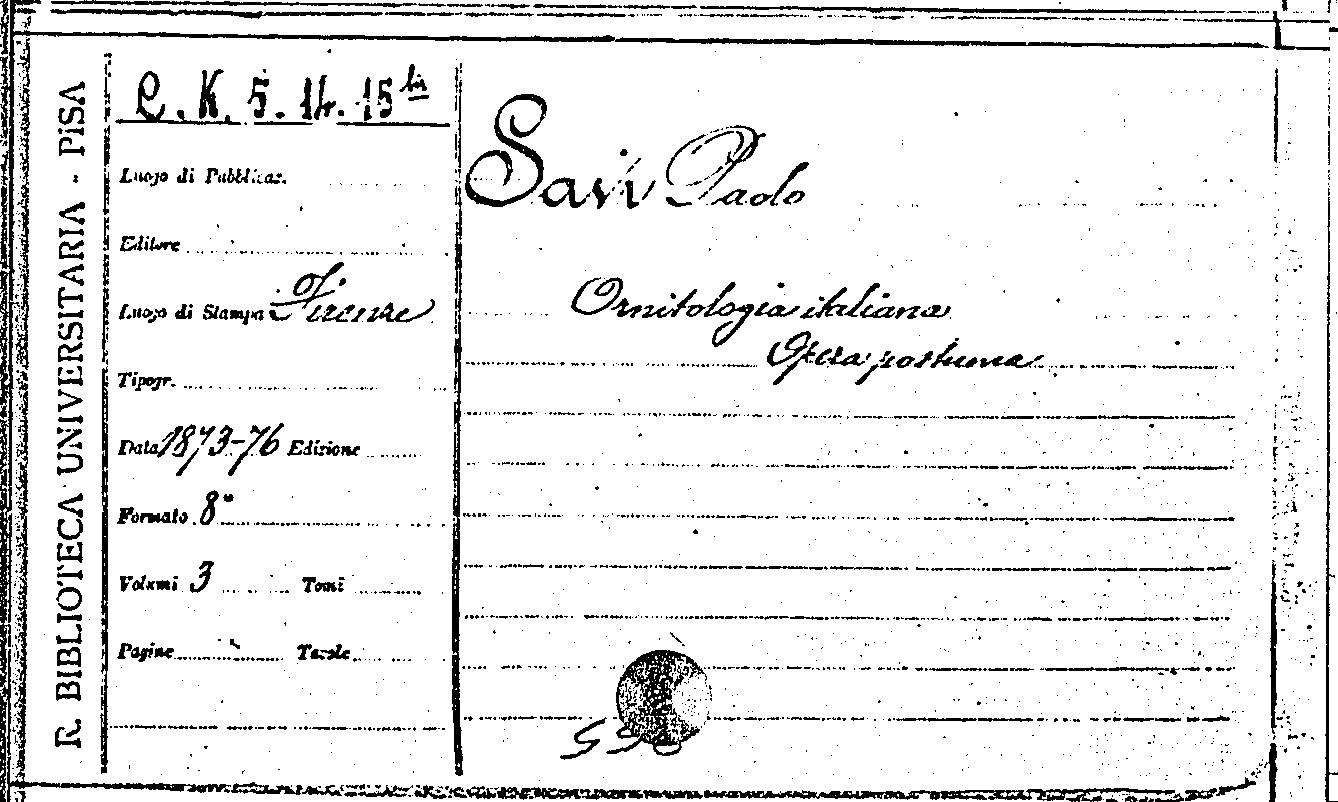 R. BIBLIOTECA UNIVERSITARIA - PISA
C. K. 5. 14. 15 bis
Luogo di Pubblicaz.
Editore
Luogo di Stampa Firenze
Tipogr.
Data 1873-76 Edizione
Formato 8°
Volumi 3 Tomi
Pagine Tavole
Savi Paolo
Ornitologia italiana
Opera postuma